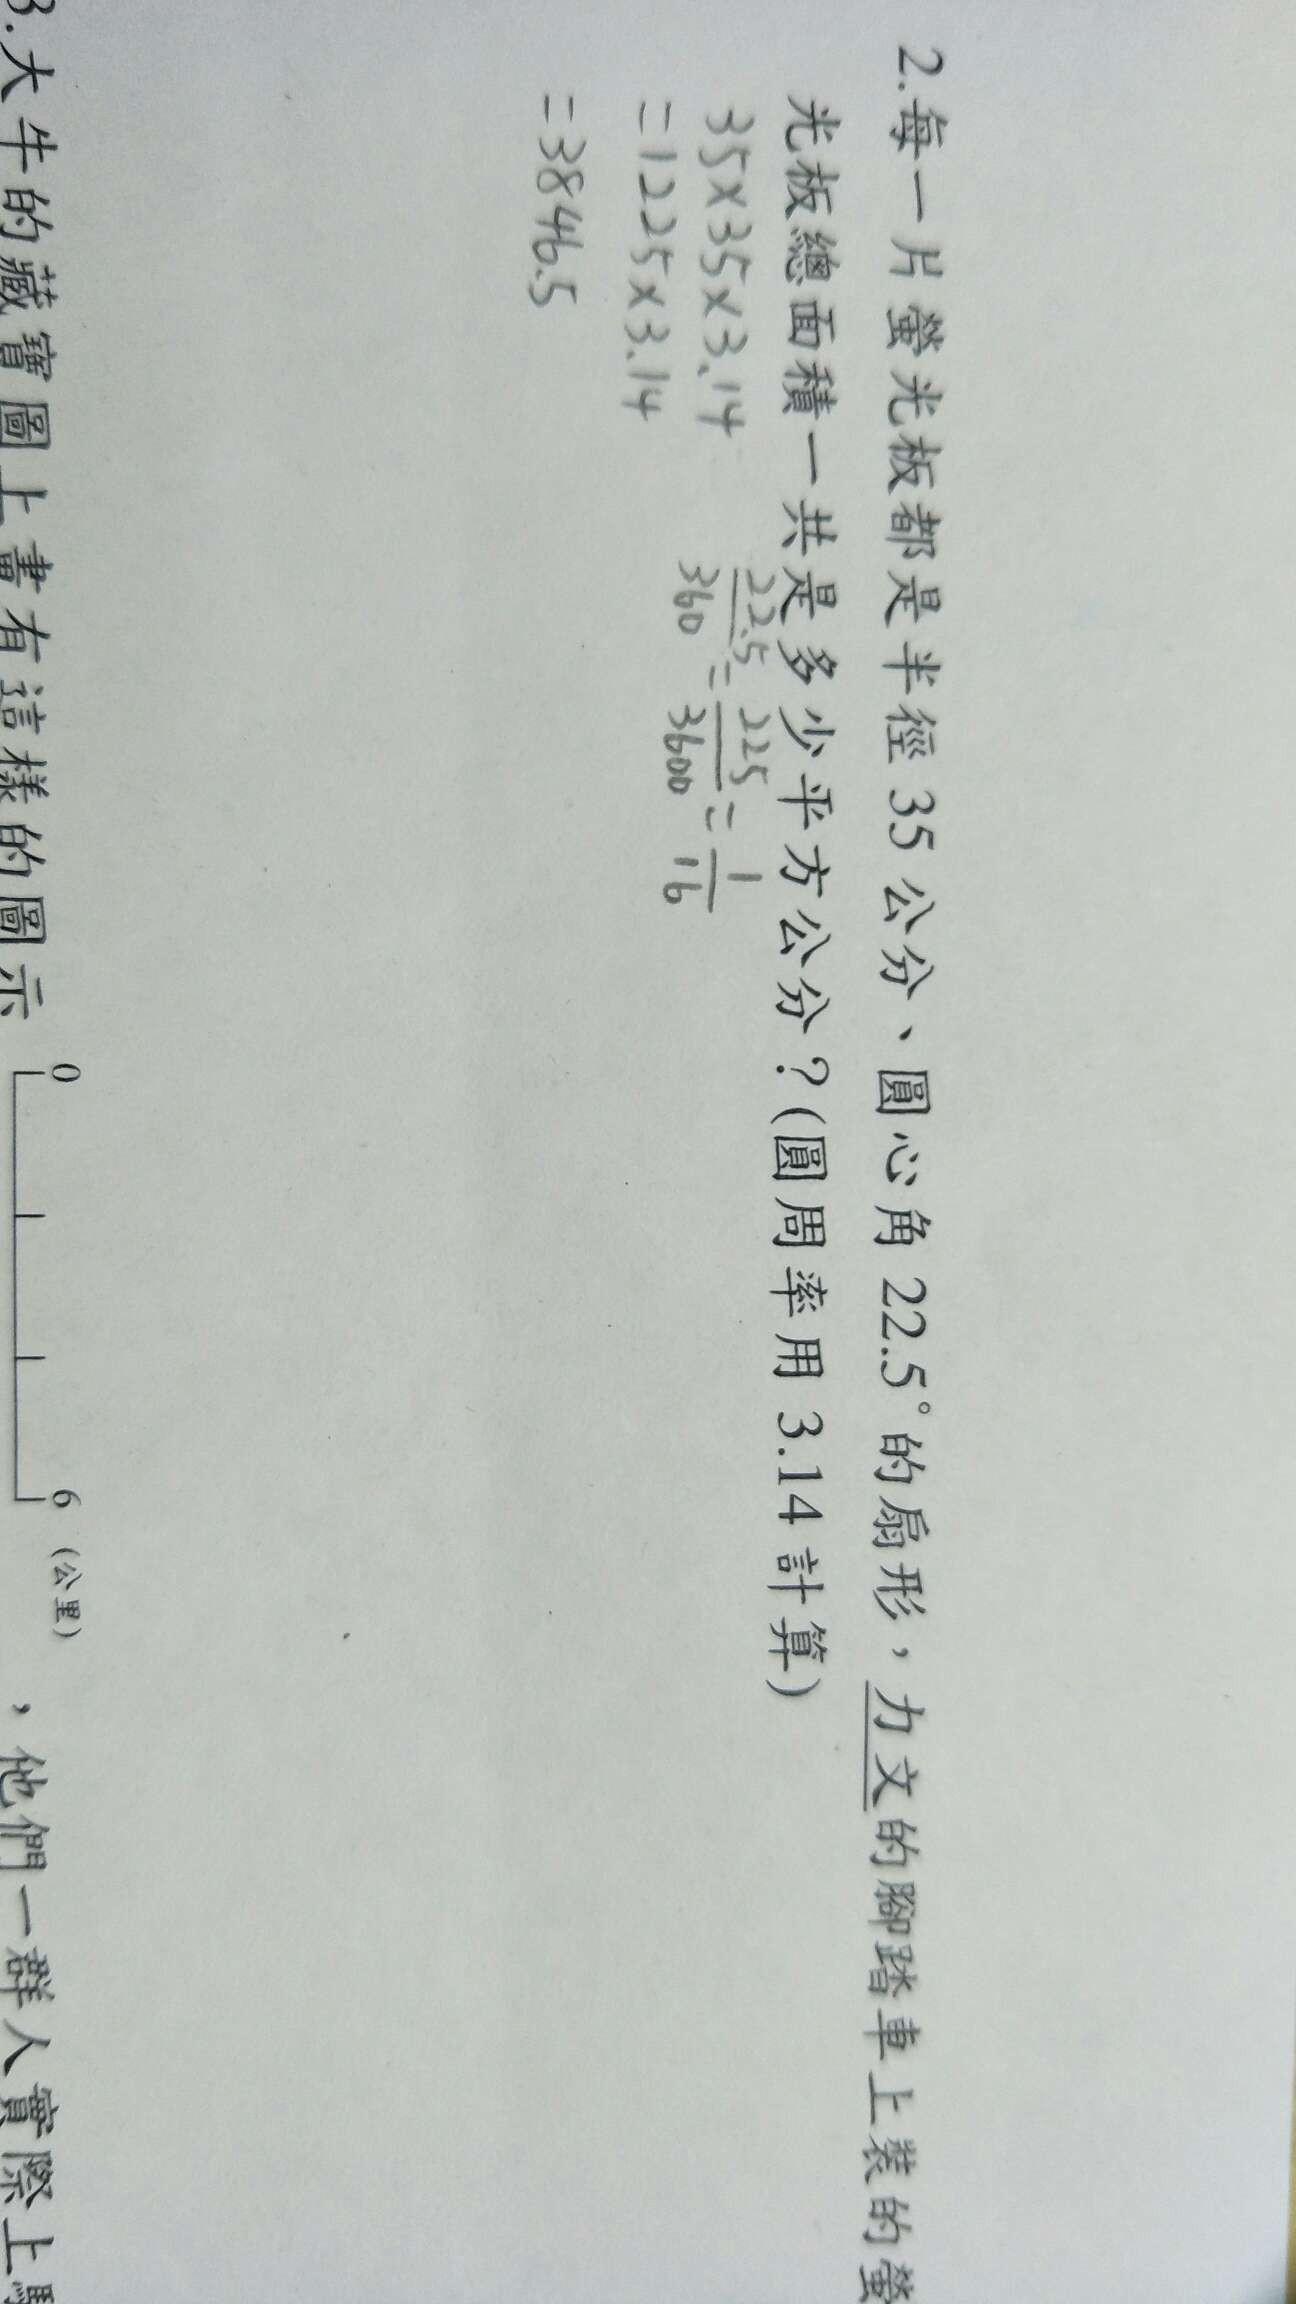 2.每一片螢光板都是半徑35公分、圓心角22.5°的扇形，力文的腳踏車上裝的螢
光板總面積一共是多少平方公分？(圓周率用3.14計算)
35×35×3.14
22.5/360=225/3600=1/16
=1225×3.14
=3846.5
0 6 (公里)
3.大牛的藏寶圖上畫有這樣的圖示 ，他們一群人實際上